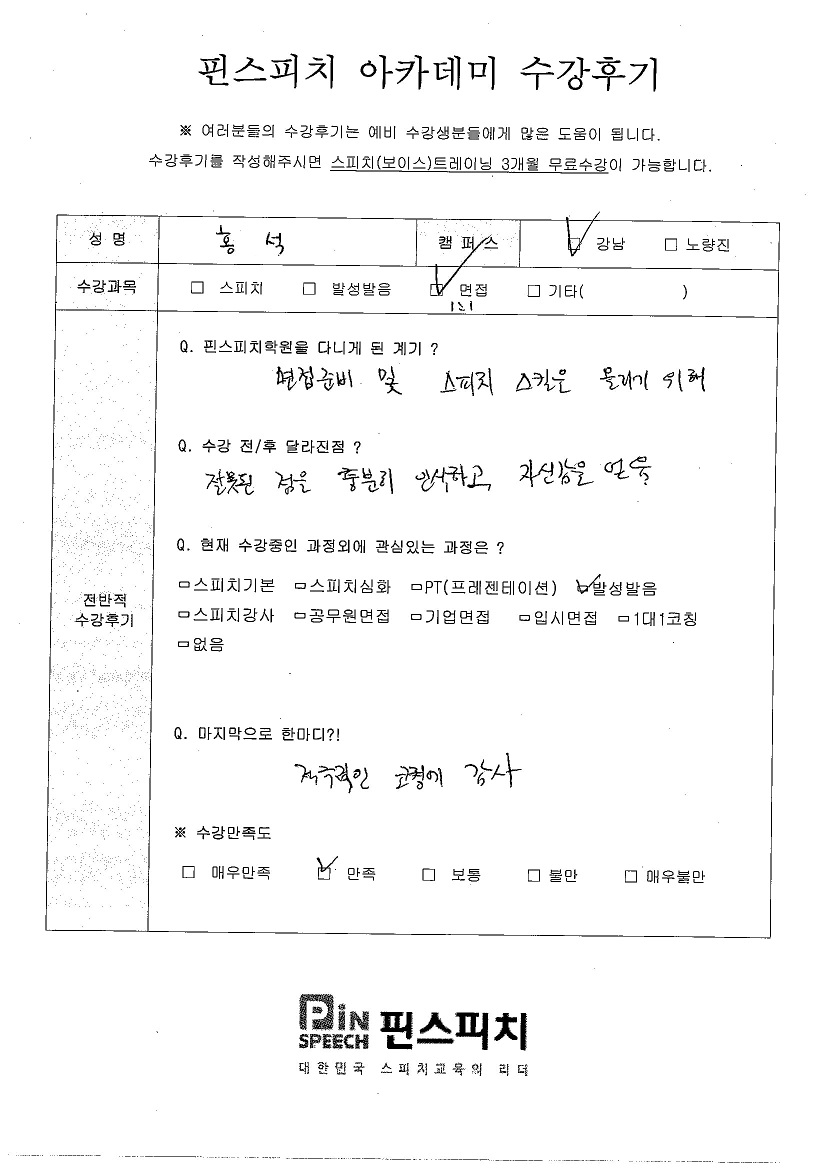 핀스피치 아카데미 수강후기
※ 여러분들의 수강후기는 예비 수강생분들에게 많은 도움이 됩니다.
수강후기를 작성해주시면 스피치(보이스)트레이닝 3개월 무료수강이 가능합니다.
성 명 홍 석 캠 퍼 스 ☑ 강남 □ 노량진
수강과목 □ 스피치 □ 발성발음 ☑ 면접 □ 기타( )
1:1
Q. 핀스피치학원을 다니게 된 계기 ?
면접준비 및 스피치 스킬을 올리기 위해
Q. 수강 전/후 달라진점 ?
잘못된 점을 충분히 인식하고, 자신감을 얻음
Q. 현재 수강중인 과정외에 관심있는 과정은 ?
□스피치기본 □스피치심화 □PT(프레젠테이션) ☑발성발음
전반적
수강후기
□스피치강사 □공무원면접 □기업면접 □입시면접 □1대1코칭
□없음
Q. 마지막으로 한마디?!
적극적인 코칭에 감사
※ 수강만족도
□ 매우만족 ☑ 만족 □ 보통 □ 불만 □ 매우불만
PiN
SPEECH 핀스피치
대한민국 스피치교육의 리더